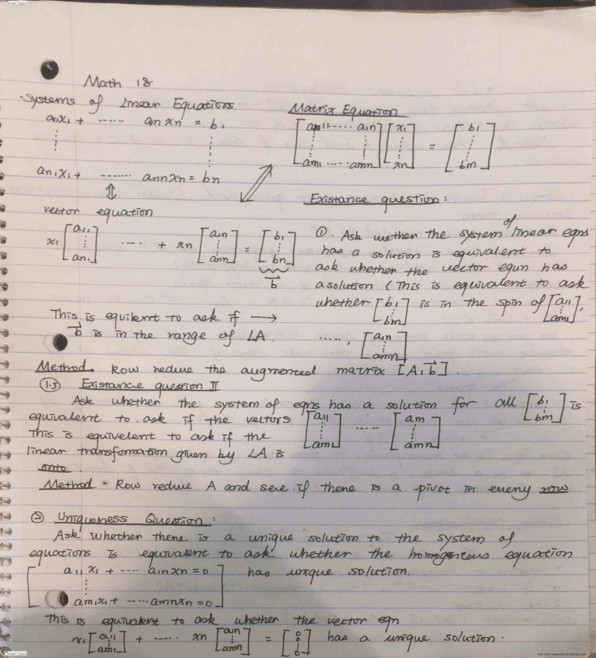 Math 18
Systems of Linear Equations
a₁x₁ + ------ an xn = b₁
an₁x₁ + ------- ann xn = bn
Matrix Equation
[a₁₁ ----- a₁n] [x₁] = [b₁]
[am₁ ----- amn] [xn] [bm]
vector equation
x₁ [a₁₁ ⋮ an₁] ---- + xn [a₁n ⋮ ann] = [b₁ ⋮ bn]
b⃗
Existance question:
① Ask wether the system of linear eqns
has a solution is equivalent to
ask whether the vector equn has
a solution (This is equivalent to ask
whether [b₁ ⋮ bm] is in the spin of [a₁₁ ⋮ am₁],
....., [a₁n ⋮ amn]
This is equilent to ask if ⟶
b⃗ is in the range of LA.
Method. Row reduce the augmented matrix [A, b⃗].
(1.5) Existance question II
Ask whether the system of eqns has a solution for all [b₁ ⋮ bm] is
equivalent to ask if the vectors [a₁₁ ⋮ am₁] ---- [am ⋮ amn]
This is equivelent to ask if the
linear transformation given by LA is
onto.
Method - Row reduce A and see if there is a pivot in every row
② Uniqueness Question:
Ask whether there is a unique solution to the system of
equations is equivalent to ask whether the homogenous equation
[a₁₁x₁ + ---- a₁nxn = 0
am₁x₁ + ---- amnxn = 0] has unique solution.
This is equivalent to ask whether the vector eqn
x₁ [a₁₁ ⋮ am₁] + ----- xn [a₁n ⋮ amn] = [0 0 0] has a unique solution.